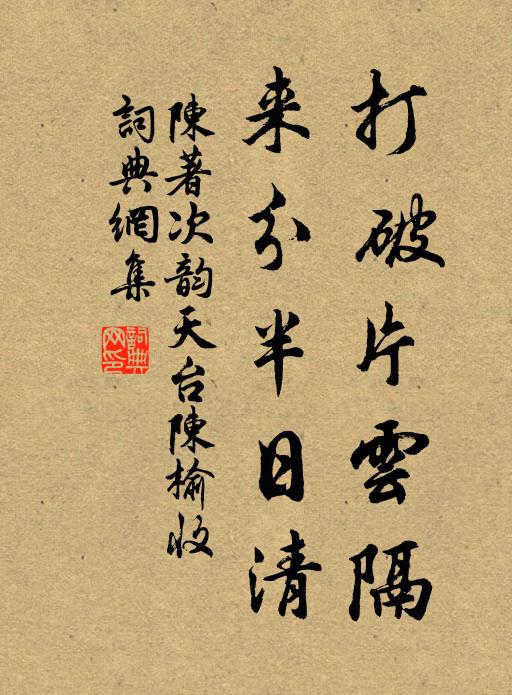 打破片雲隔
来分半日清
陳著次韵天台陳榆收
詞典網集
詞典网印